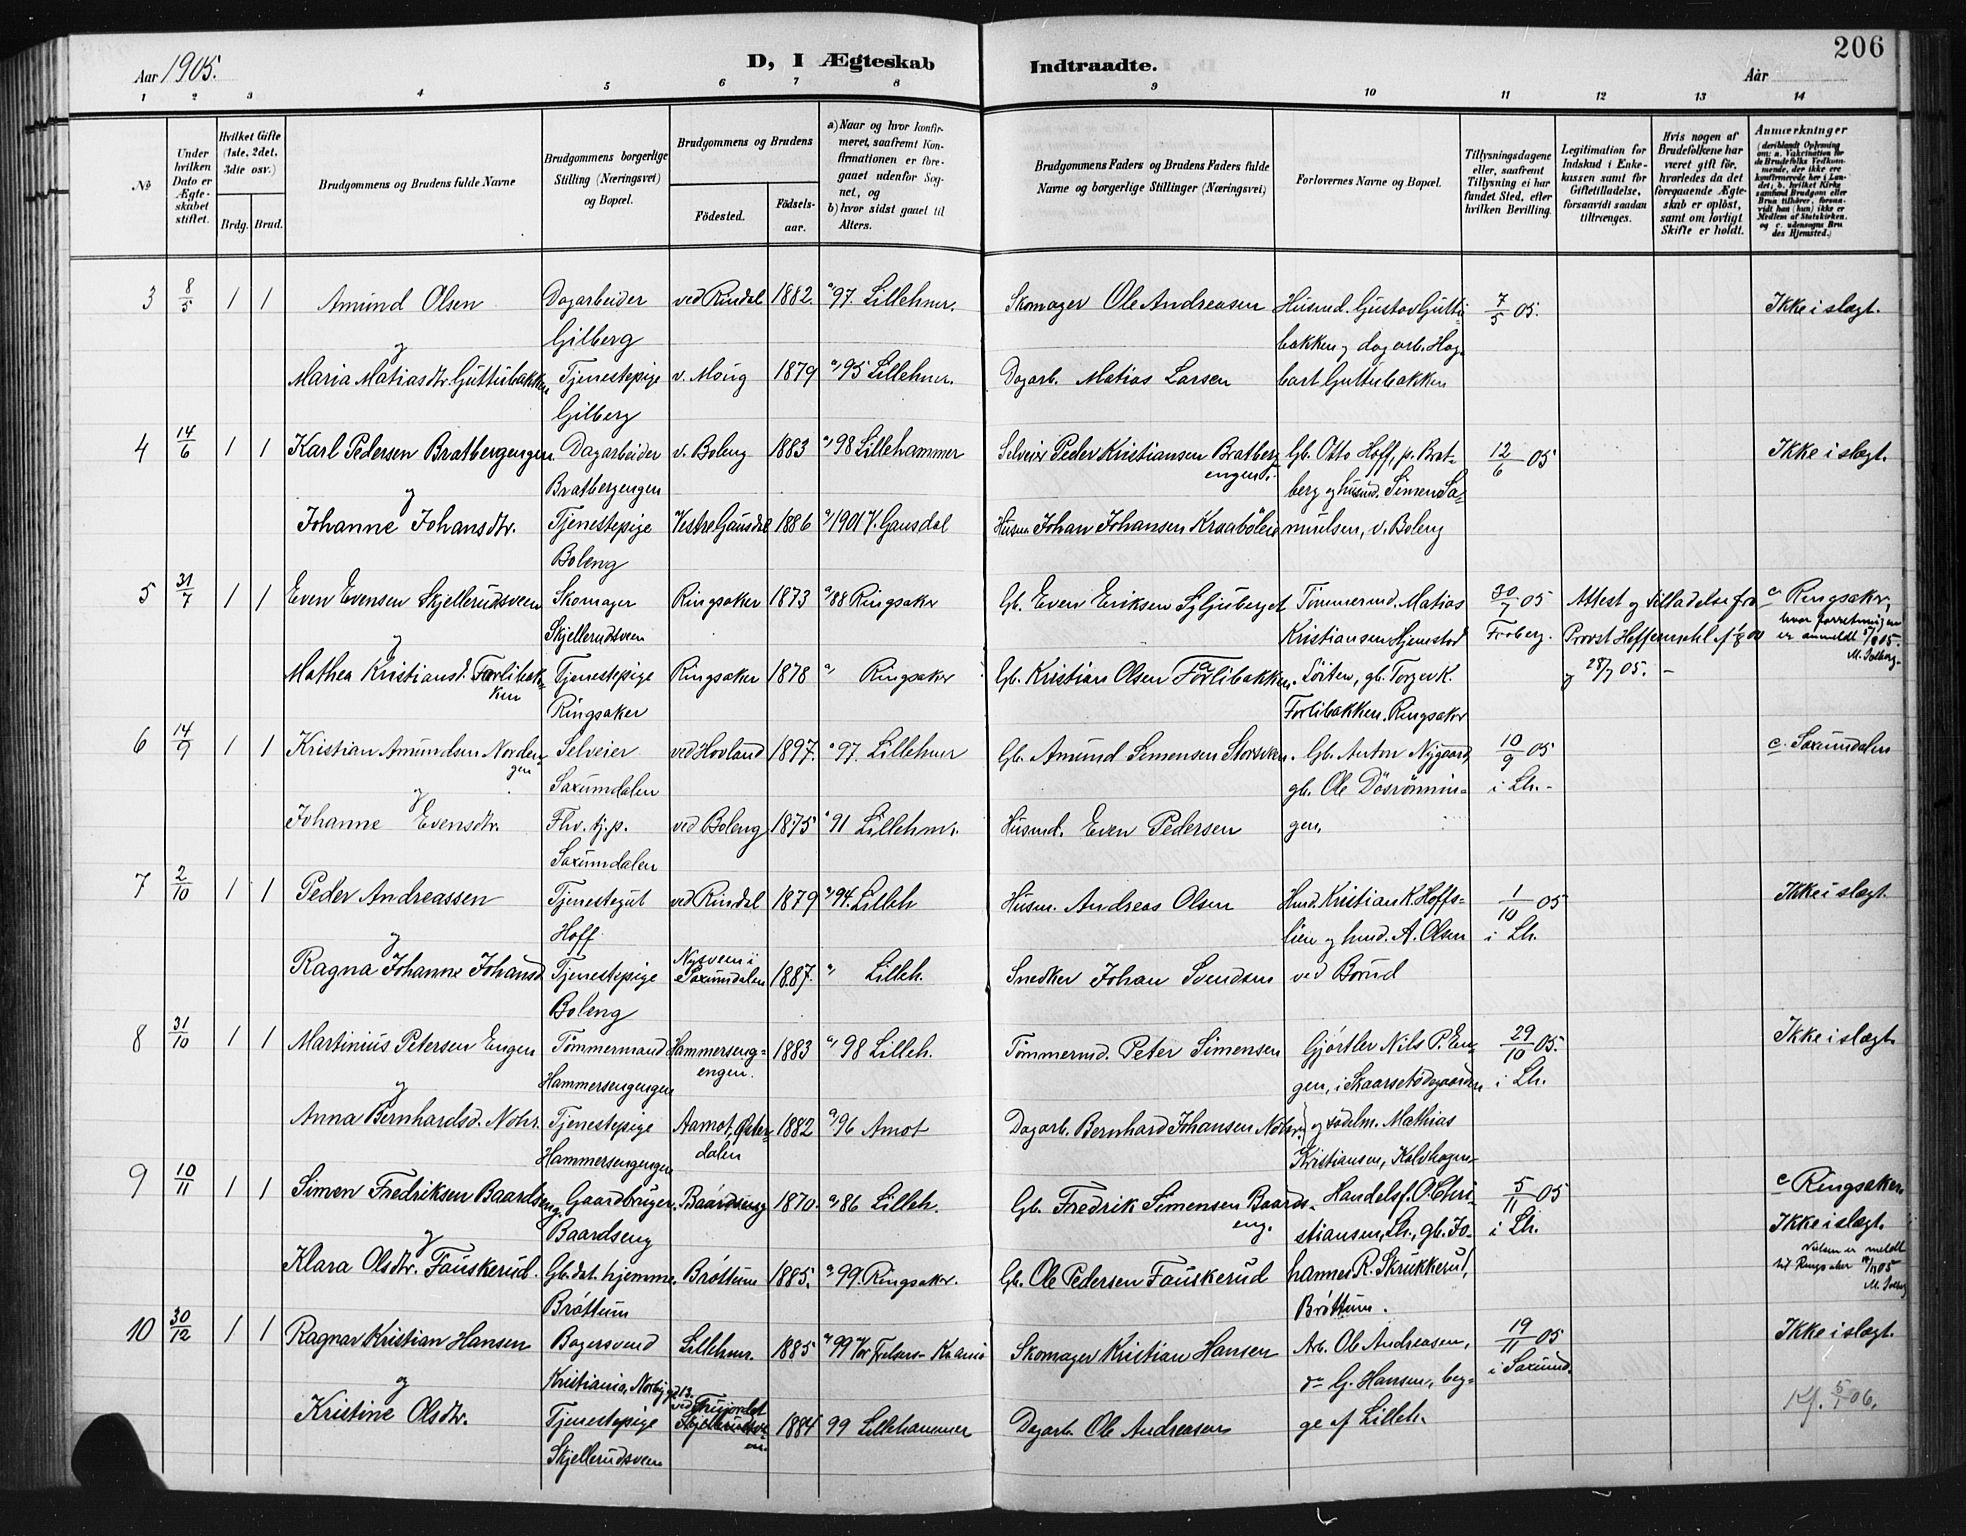 206
Aar 1905.
D, I Ægteskab Indtraadte.
Aar
1 2 3 4 5 6 7 8 9 10 11 12 13 14
No
Under hvilken Dato er Ægteskabet stiftet.
Hvilket Gifte (1ste, 2det, 3die osv.)
Brdg. Brud.
Brudgommens og Brudens fulde Navne
Brudgommens borgerlige Stilling (Næringsvei) og Bopæl.
Brudgommens og Brudens
Födested.
Födselsaar.
a) Naar og hvor konfirmeret, saafremt Konfirmationen er foregaaet udenfor Sognet, og
b) hvor sidst gaaet til Alters.
Brudgommens Faders og Brudens Faders fulde Navne og borgerlige Stillinger (Næringsvei)
Forlovernes Navne og Bopæl.
Tillysningsdagene eller, saafremt Tillysning ei har fundet Sted, efter hvilken Bevilling.
Legitimation for Indskud i Enkekassen samt for Giftetilladelse, forsaavidt saadan tiltrænges.
Hvis nogen af Brudefolkene har været gift för, hvorledes da det foregaaende Ægteskab er oplöst, samt om lovligt Skifte er holdt.
Anmærkninger
3 8/5 1 1 Amund Olsen Dagarbeider ved Rindal 1882 a 97. Lillehmr. Skomager Ole Andreasen Husmd. Gustav Guttu- 7/5 05. Ikke i slægt.
og Gilberg bakken og dagarb. Hag-
Maria Matiasdtr. Guttubakken Tjenestepige v. Moug 1879 a 95 Lillehmr. Dagarb. Matias Larsen bart Guttubakken
Gilberg
4 14/6 1 1 Karl Pedersen Bratbergengen. Dagarbeider v. Boleng 1883 a 98 Lillehammer Selveier Peder Kristiansen Bratberg Gb. Otto Hoff, p. Brat- 12/6 05 Ikke i slægt.
og Bratbergengen engen. berg og husmd. Simen Sa-
Johanne Johansdtr. Tjenestepige Vestre Gausdal 1886 a 1901 V. Gausdal Husm. Johan Johansen Kraabøleie muelsen, v. Boleng
Boleng
5 31/7 1 1 Even Evensen Skjellerudsveen Skomager Ringsaker 1873 a 88 Ringsakr Gb. Even Eriksen Syljuberget Tømmermd. Matias 30/7 05 Attest og tilladelse fra c Ringsakr,
og Skjellerudsveen Kristiansen Hjemstad Froberg. Provst Heffermehl hvor forretningen er anmeldt 1/8 05. M. Solberg
Mathea Kristiansd. Forlibakken Tjenestepige Ringsaker 1878 a Ringsakr Gb. Kristian Olsen Forlibakken. Löiten, gb. Torger K. og 28/7 05.
Ringsaker Forlibakken. Ringsakr
6 14/9 1 1 Kristian Amundsen Nordengen Selveier ved Hovland 1897. a 97. Lillehmr Gb. Amund Simensen Storsveen. Gb. Anton Nygaard, 10/9 05 c. Saxumdalen
og Saxumdalen gb. Ole Dösrönnin- i Lh.
Johanne Evensdtr. Fhv. tj.p. ved Boleng 1875 a 91 Lillehmr. Husmd. Even Pedersen gen.
Saxumdalen
7 2/10 1 1 Peder Andreassen Tjenestegut ved Rindal 1879 a 94. Lilleh Husm. Andreas Olsen Husmd. Kristian K. Hoffs- 1/10 05 Ikke i slægt.
og Hoff lien og husmd. A. Olsen i Lh.
Ragna Johanne Johansd. Tjenestepige Nysveen i Saxumdalen 1887. a Lilleh. Snedker Johan Svendsen ved Borud
Boleng
8 31/10 1 1 Martinius Petersen Engen Tömmermand Hammerseng- 1883 a 98 Lilleh. Tømmermd. Peter Simensen Gjörtler Nils P. En- 29/10 05. Ikke i slægt.
og Hammersengengen engen. gen, i Skaarsetødegaarden i Lh.
Anna Bernhardsd. Nohr. Tjenestepige Aamot, Øster- 1882 a 96 Amot Dagarb. Bernhard Johansen Nohr og sadelm. Mathias
Hammersengengen dalen Kristiansen, Kalvhagen
9 10/11 1 1 Simen Fredriksen Baardseng. Gaardbruger. Baardseng 1870. a 86 Lilleh. Gb. Fredrik Simensen Baards- Handelsf. O. Chri- 5/11 05 c Ringsaker
og Baardseng eng. stiansen, Lh., gb. Jo- i Lh. Ikke i slægt.
Klara Olsdtr. Fauskerud. Gb.dat. hjemme. Bröttum 1885. a 99. Ringsakr. Gb. Ole Pedersen Fauskerud hannes R. Skrukkerud, Vielsen er meldt til Ringsaker 11/11 05 M. Solberg
Bröttum Bröttum.
10 30/12 1 1 Ragnar Kristian Hansen Bagersvend Lillehmr. 1885 a 99 Vor Frelsers Kr.ania Skomager Kristian Hansen Arb. Ole Andreasen, 19/11 05 Ikke i slægt.
og Kristiania, Norbygd. 13. do G. Hansen, beg- i Saxumd.
Kristine Olsdtr. Tjenestepige ved 1884 99 Lillehammer Dagarb. Ole Andreasen ge af Lilleh. Kf. 5/1 06.
Skjellerudsveen